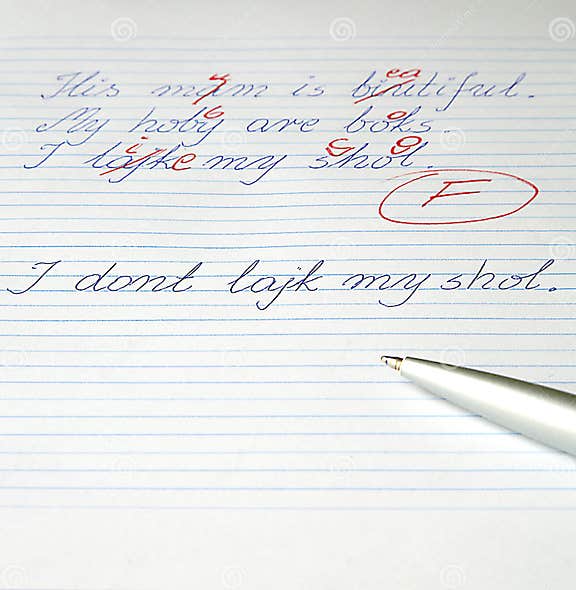 His mam is biutiful.
My hoby are boks.
I lajke my shol.
F
I dont lajk my shol.